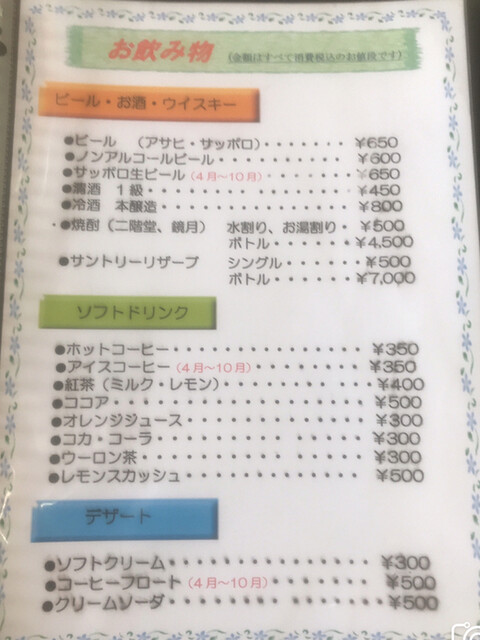 お飲み物 (金額はすべて消費税込のお値段です)
ビール・お酒・ウイスキー
●ビール (アサヒ・サッポロ)・・・・・・・¥650
●ノンアルコールビール・・・・・・・・・・¥600
●サッポロ生ビール(4月〜10月)・・・・・・¥650
●清酒 1級・・・・・・・・・・・・・・・¥450
●冷酒 本醸造・・・・・・・・・・・・・・¥800
●焼酎(二階堂、鏡月) 水割り、お湯割り・¥500
ボトル・・・・・・¥4,500
●サントリーリザーブ シングル・・・・・¥500
ボトル・・・・・・¥7,000
ソフトドリンク
●ホットコーヒー・・・・・・・・・・・・・¥350
●アイスコーヒー(4月〜10月)・・・・・・・¥350
●紅茶(ミルク・レモン)・・・・・・・・・・¥400
●ココア・・・・・・・・・・・・・・・・・¥500
●オレンジジュース・・・・・・・・・・・・¥300
●コカ・コーラ・・・・・・・・・・・・・・¥300
●ウーロン茶・・・・・・・・・・・・・・・¥300
●レモンスカッシュ・・・・・・・・・・・・¥500
デザート
●ソフトクリーム・・・・・・・・・・・・・¥300
●コーヒーフロート(4月〜10月)・・・・・・¥500
●クリームソーダ・・・・・・・・・・・・・¥500